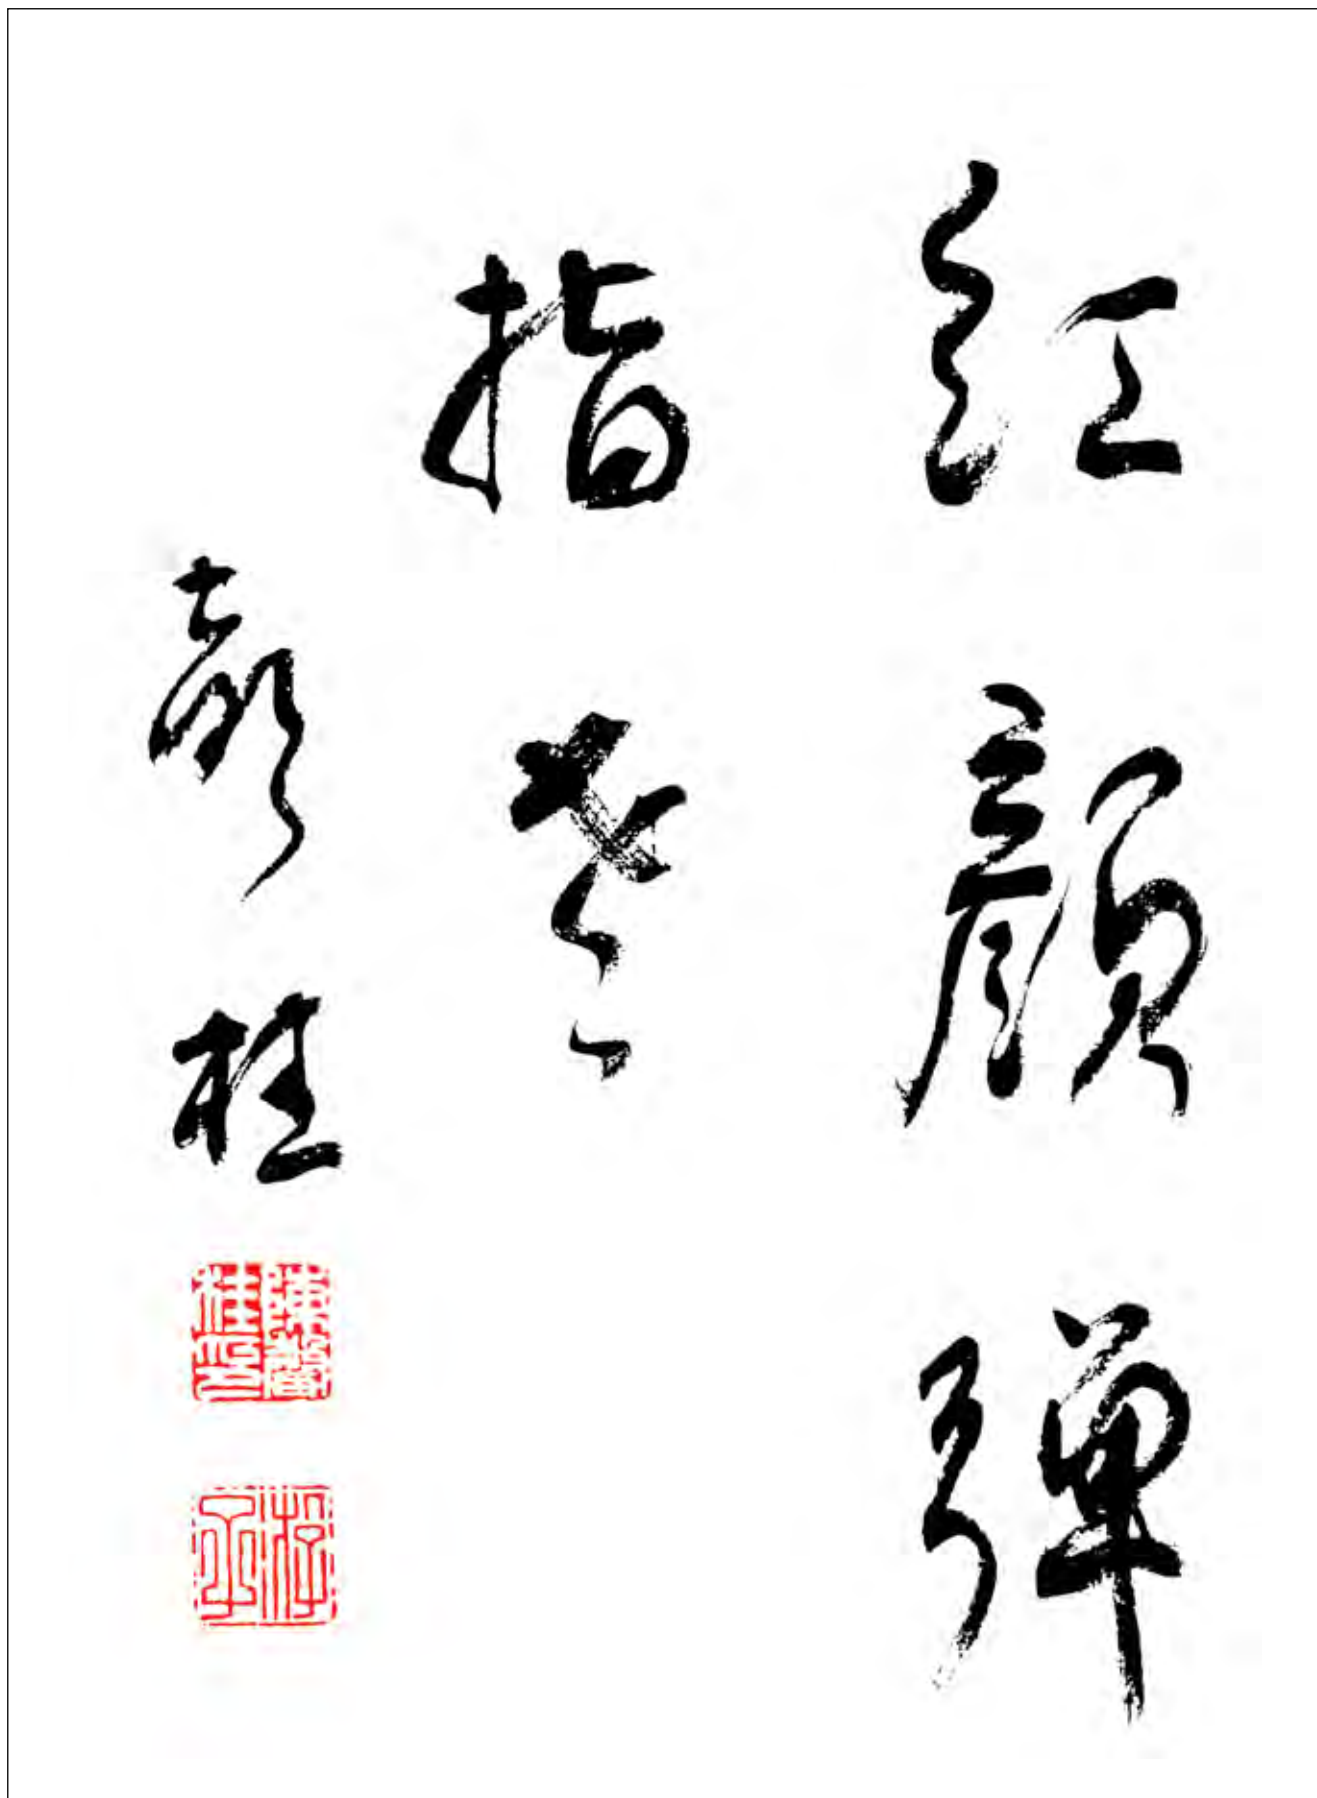 紅顏彈
指老
馨桂